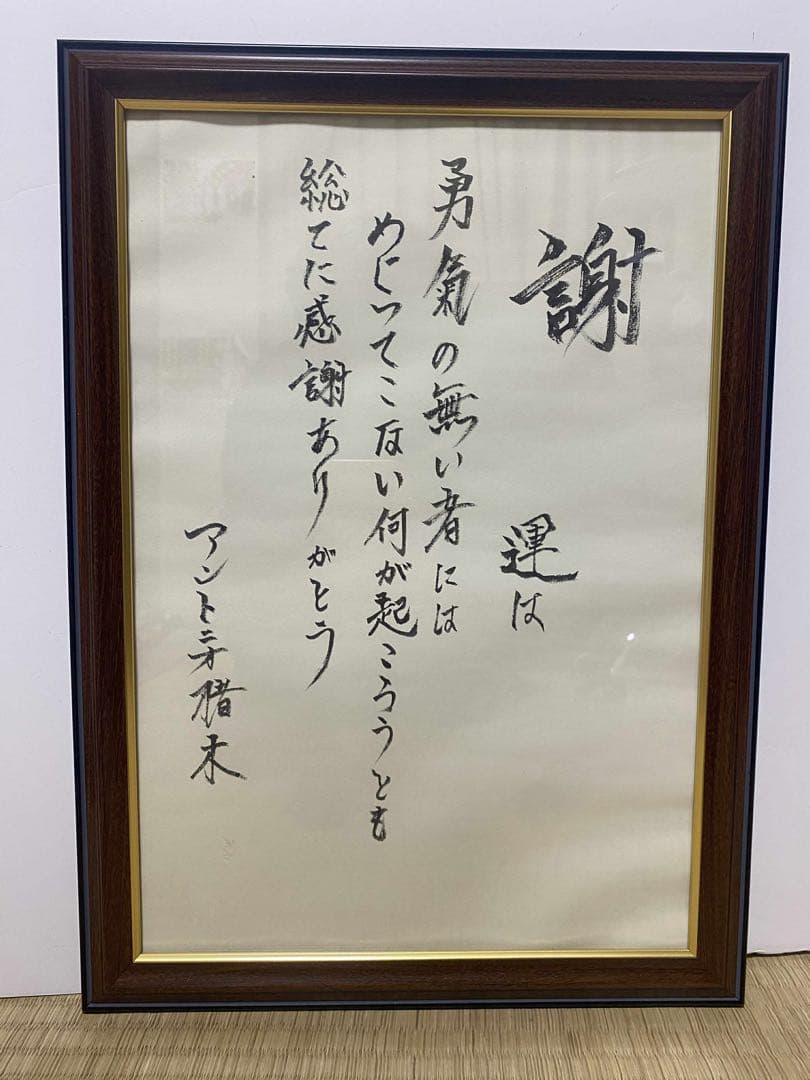 謝
運は
勇氣の無い者には
めぐってこない何が起ころうとも
総てに感謝ありがとう
アントニオ猪木